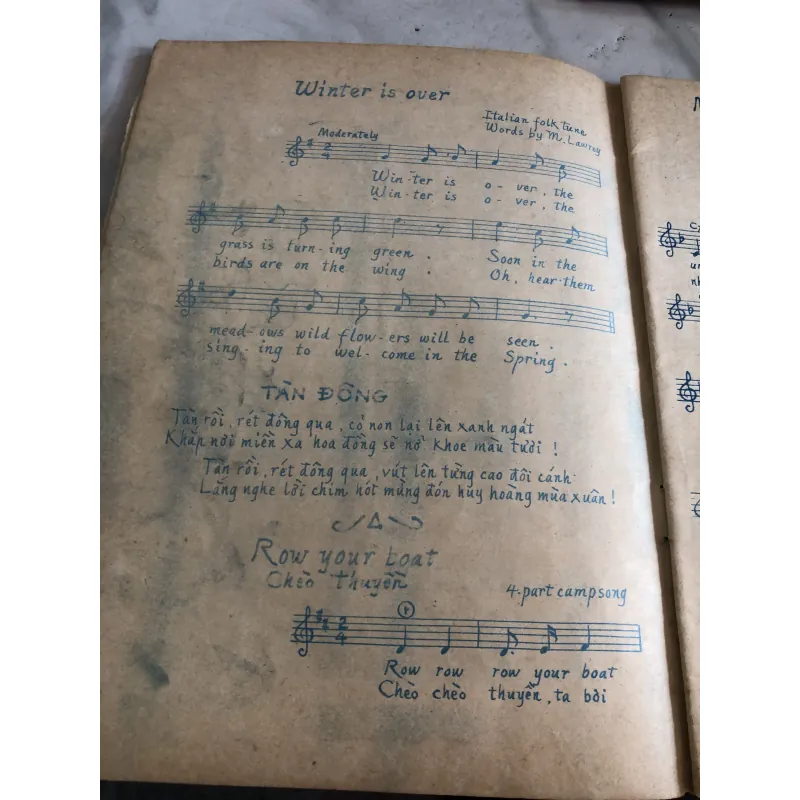 Winter is over
Italian folk tune
Words by M. Lawrey
Moderately
2 4
Win-ter is o-ver, the
Win-ter is o-ver, the
grass is turn-ing green. Soon in the
birds are on the wing. Oh, hear them
mead-ows wild flow-ers will be seen.
sing-ing to wel-come in the Spring.
TÀN ĐÔNG
Tàn rồi, rét đông qua, cỏ non lại lên xanh ngát
Khắp nơi miền xa hoa đồng sẽ nở khoe màu tươi!
Tàn rồi, rét đông qua, vút lên từng cao đôi cánh.
Lắng nghe lời chim hót mừng đón huy hoàng mùa xuân!
Row your boat
Chèo thuyền
4-part campsong
1
2 4
Row row row your boat
Chèo chèo thuyền, ta bơi